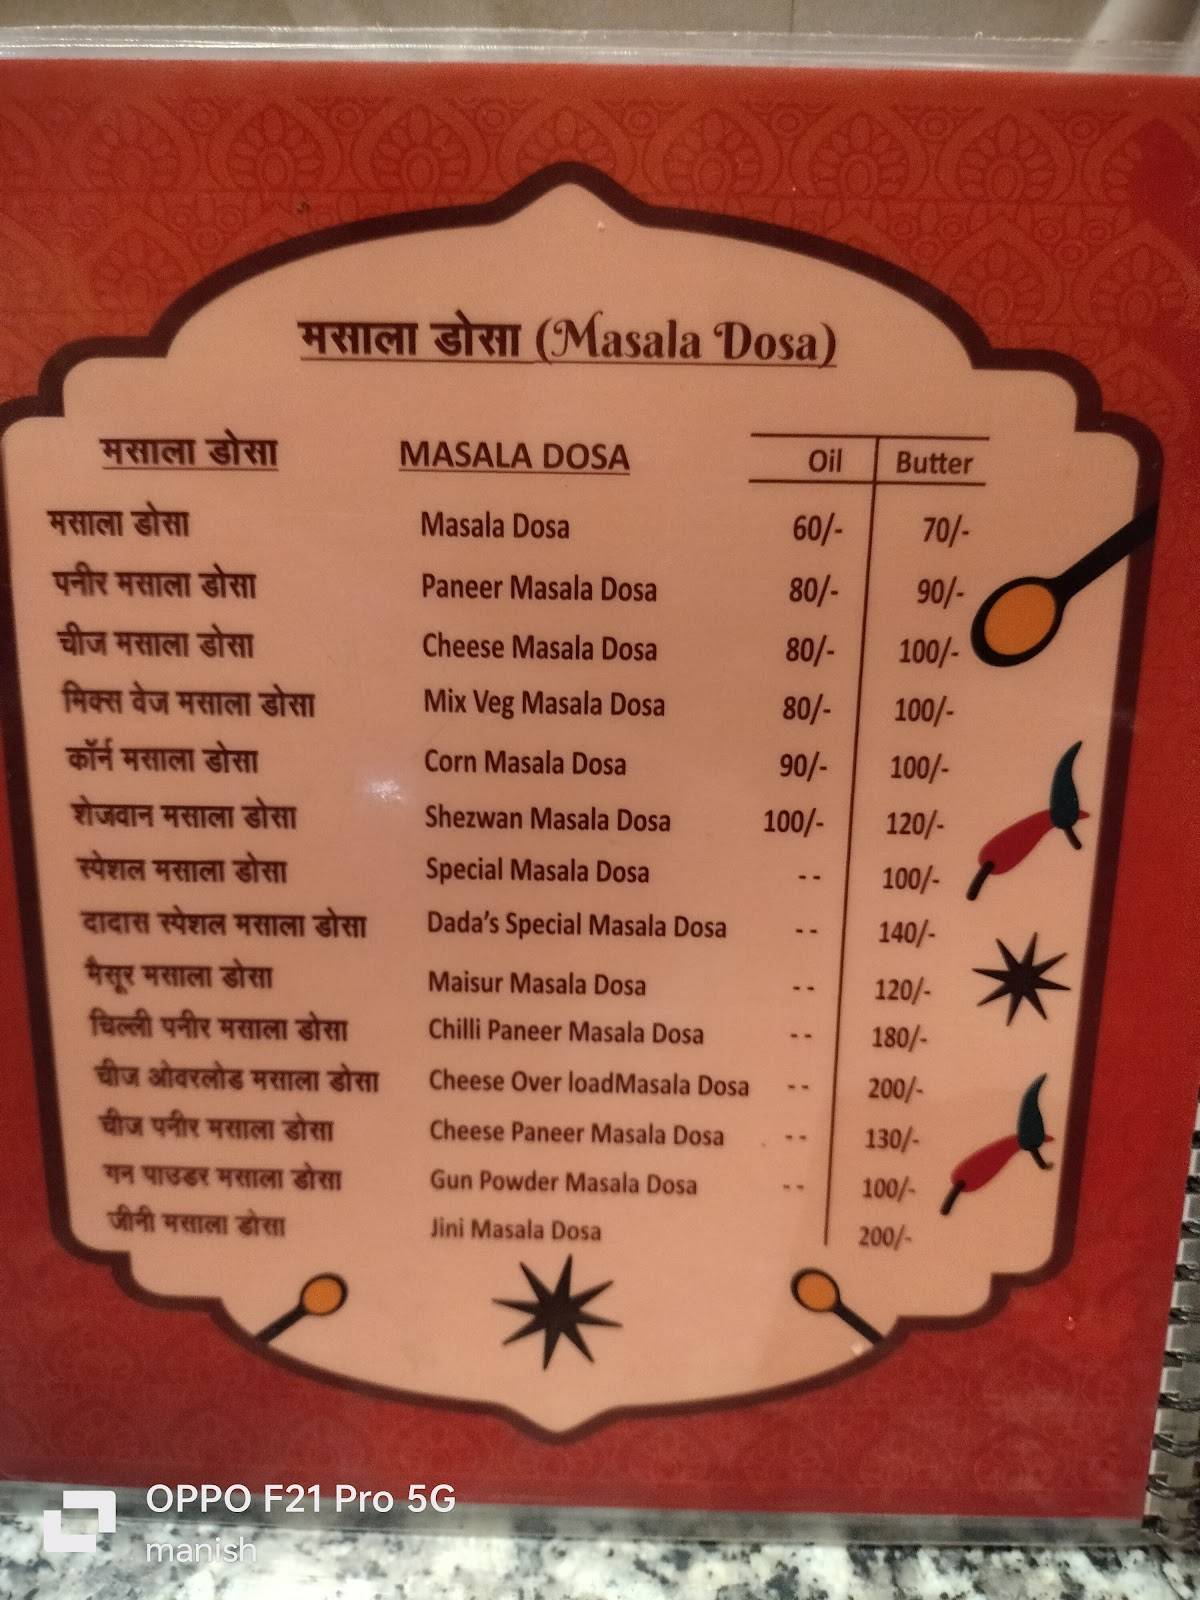 मसाला डोसा (Masala Dosa)
मसाला डोसा MASALA DOSA Oil Butter
मसाला डोसा Masala Dosa 60/- 70/-
पनीर मसाला डोसा Paneer Masala Dosa 80/- 90/-
चीज मसाला डोसा Cheese Masala Dosa 80/- 100/-
मिक्स वेज मसाला डोसा Mix Veg Masala Dosa 80/- 100/-
कॉर्न मसाला डोसा Corn Masala Dosa 90/- 100/-
शेजवान मसाला डोसा Shezwan Masala Dosa 100/- 120/-
स्पेशल मसाला डोसा Special Masala Dosa -- 100/-
दादास स्पेशल मसाला डोसा Dada's Special Masala Dosa -- 140/-
मैसूर मसाला डोसा Maisur Masala Dosa -- 120/-
चिल्ली पनीर मसाला डोसा Chilli Paneer Masala Dosa -- 180/-
चीज ओवरलोड मसाला डोसा Cheese Over loadMasala Dosa -- 200/-
चीज पनीर मसाला डोसा Cheese Paneer Masala Dosa -- 130/-
गन पाउडर मसाला डोसा Gun Powder Masala Dosa -- 100/-
जीनी मसाला डोसा Jini Masala Dosa 200/-
OPPO F21 Pro 5G
manish